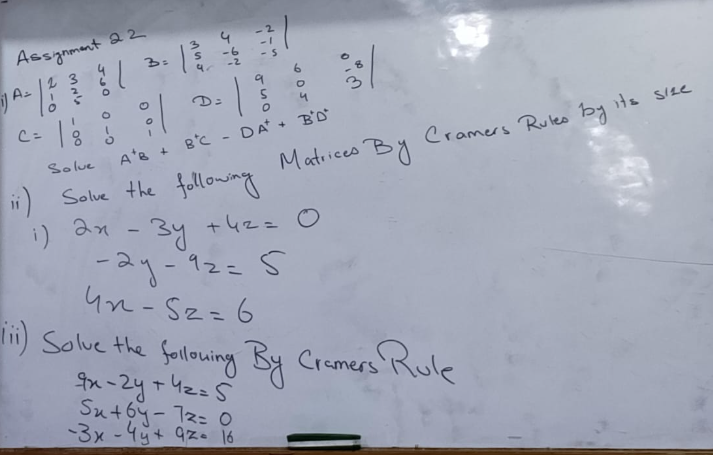 Assignment 22
i) A= | 2 3 4 | B= | 3 4 -2 |
1 2 6 5 -6 -1
0 5 0 4 -2 -5
C= | 1 0 0 | D= | 9 6 0 |
0 1 0 5 0 -8
0 0 1 0 4 3
Solve A⁺B + B⁺C - DA⁺ + B⁺D⁺
ii) Solve the following Matrices By Cramers Rules by its size
i) 2x - 3y + 4z = 0
-2y - 9z = 5
4x - 5z = 6
iii) Solve the following By Cramers Rule
9x - 2y + 4z = 5
5x + 6y - 7z = 0
-3x - 4y + 9z = 16